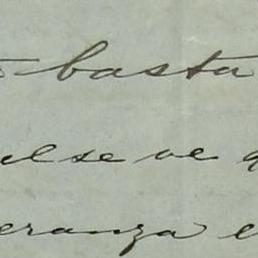 basta
el se ve q
eranza e